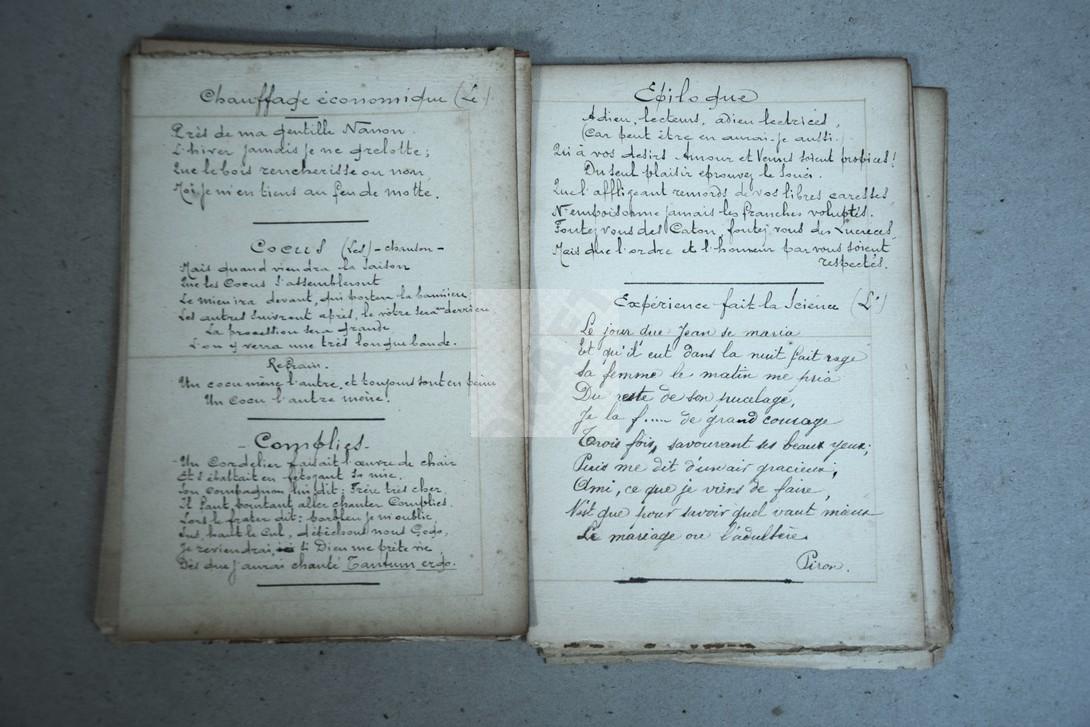 Chauffage économique (Le)
Près de ma gentille Nanon
L'hiver jamais je ne grelotte;
Que le bois renchérisse ou non,
Moi je m'en tiens au feu de motte.
Cocus (Les) - chanson -
Mais quand viendra la saison
Que les Cocus s'assembleront
Le mien ira devant, qui portera la bannière
Les autres suivront après, le vôtre sera derrière
La procession sera grande
L'on y verra une très longue bande.
Refrain.
Un cocu mène l'autre, et toujours sont en peine
Un Cocu l'autre mène.
- Complies -
Un Cordelier faisait l'œuvre de chair
Et s'ébattait en fêtoyant sa mie.
Son compagnon lui dit: Frère très cher,
Il faut pourtant aller chanter Complies.
Lors le frater dit: parbleu je m'oublie
Sus, haut le cul, dépêchons nous
Je reviendrai, si Dieu me prête vie
Dès que j'aurai chanté Tantum ergo.
Epilogue
Adieu, lecteurs, adieu lectrices,
(Car peut être en aurai-je aussi.)
Qui à vos désirs Amour et Vénus soient propices!
Du seul plaisir éprouvez le souci.
Que l'affligeant remords de vos libres caresses
N'empoisonne jamais les franches voluptés.
Foutez vous des Caton, foutez vous des Lucrèces
Mais que l'ordre et l'honneur par vous soient
respectés.
Expérience fait la Science (L')
Le jour que Jean se maria
Et qu'il eut dans la nuit fait rage
Sa femme le matin me pria
Du reste de son
Je la f..... de grand courage
Trois fois, savourant ses beaux yeux;
Puis me dit d'un air gracieux;
Ami, ce que je viens de faire,
N'est que pour savoir quel vaut mieux
Le mariage ou l'adultère.
Piron.